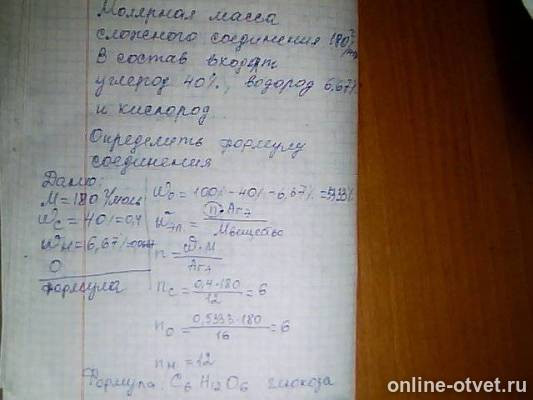 Молярная масса
сложного соединения 180 г/моль
В состав входят
углерод 40%, водород 6,67%
и кислород
Определить формулу
соединения
Дано:
M = 180 г/моль
Wс = 40% = 0,4
Wн = 6,67%
О
формула
Wо = 100% - 40% - 6,67% = 53,33%
Wэл. = n · Ar / Mвещество
n = W · M / Ar
nс = 0,4 · 180 / 12 = 6
nо = 0,5333 · 180 / 16 = 6
nн = 12
Формула C6 H12 O6 глюкоза
online-otvet.ru